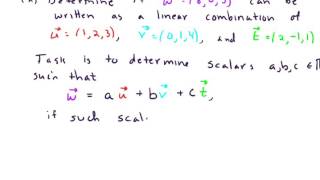 Determine if w⃗ = (8, 0, 5) can be
written as a linear combination of
u⃗ = (1, 2, 3), v⃗ = (0, 1, 4), and t⃗ = (2, -1, 1)
Task is to determine scalars a, b, c ∈
such that
w⃗ = a u⃗ + b v⃗ + c t⃗,
if such scal